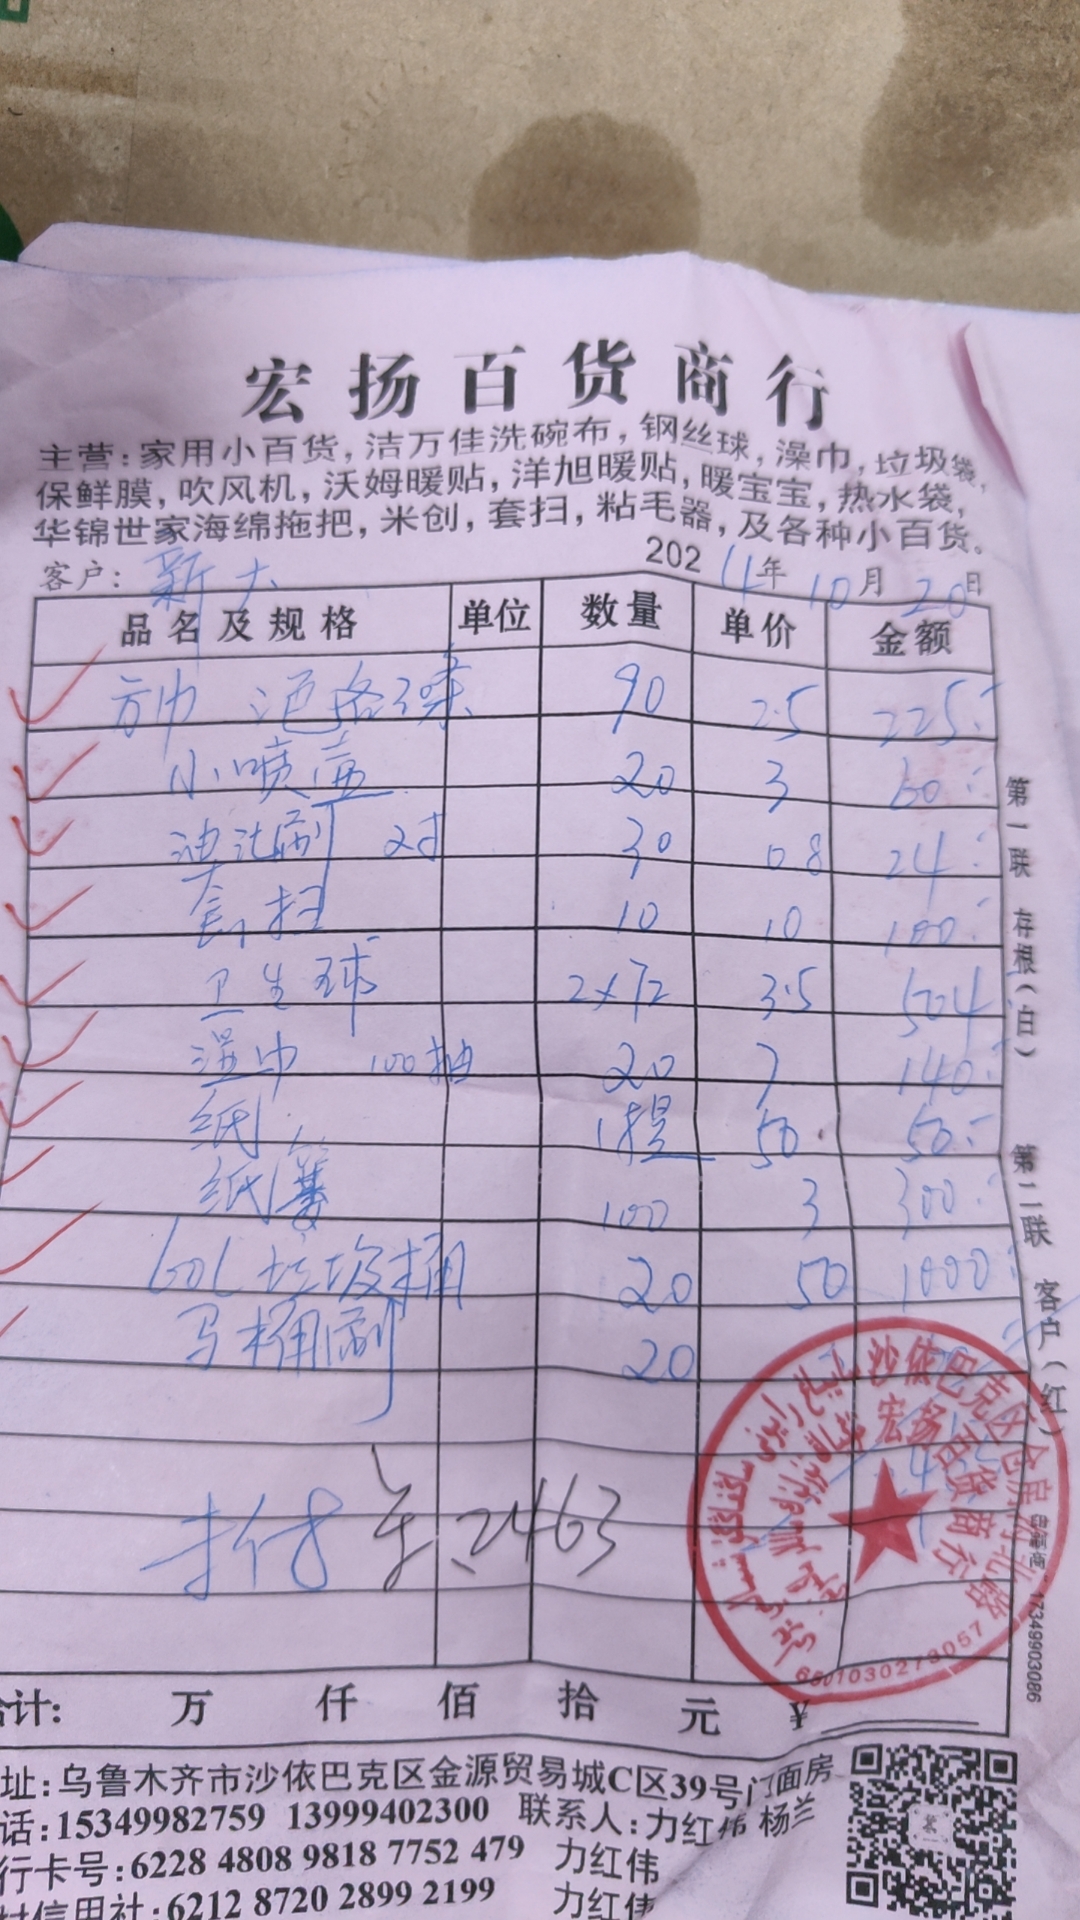 宏扬百货商行
主营:家用小百货,洁万佳洗碗布,钢丝球,澡巾,垃圾袋,
保鲜膜,吹风机,沃姆暖贴,洋旭暖贴,暖宝宝,热水袋,
华锦世家海绵拖把,米创,套扫,粘毛器,及各种小百货。
客户: 新大 202 4年 10月 20日
品名及规格 单位 数量 单价 金额
方巾 90 2.5 225
小喷壶 20 3 60
刷 30 0.8 24
套扫 10 10 100
卫生球 2×72 3.5 504
湿巾 100抽 20 7 140
纸 1提 50 50
纸篓 100 3 300
60L垃圾桶 20 50 1000
马桶刷 20
2463
合计: 万 仟 佰 拾 元 ¥
沙依巴克区仓房沟北路
宏扬百货商行
6501030273057
第一联 存根(白) 第二联 客户(红)
17349903086
址:乌鲁木齐市沙依巴克区金源贸易城C区39号门面房
话:15349982759 13999402300 联系人:力红伟 杨兰
行卡号:6228 4808 9818 7752 479 力红伟
村信用社:6212 8720 2899 2199 力红伟